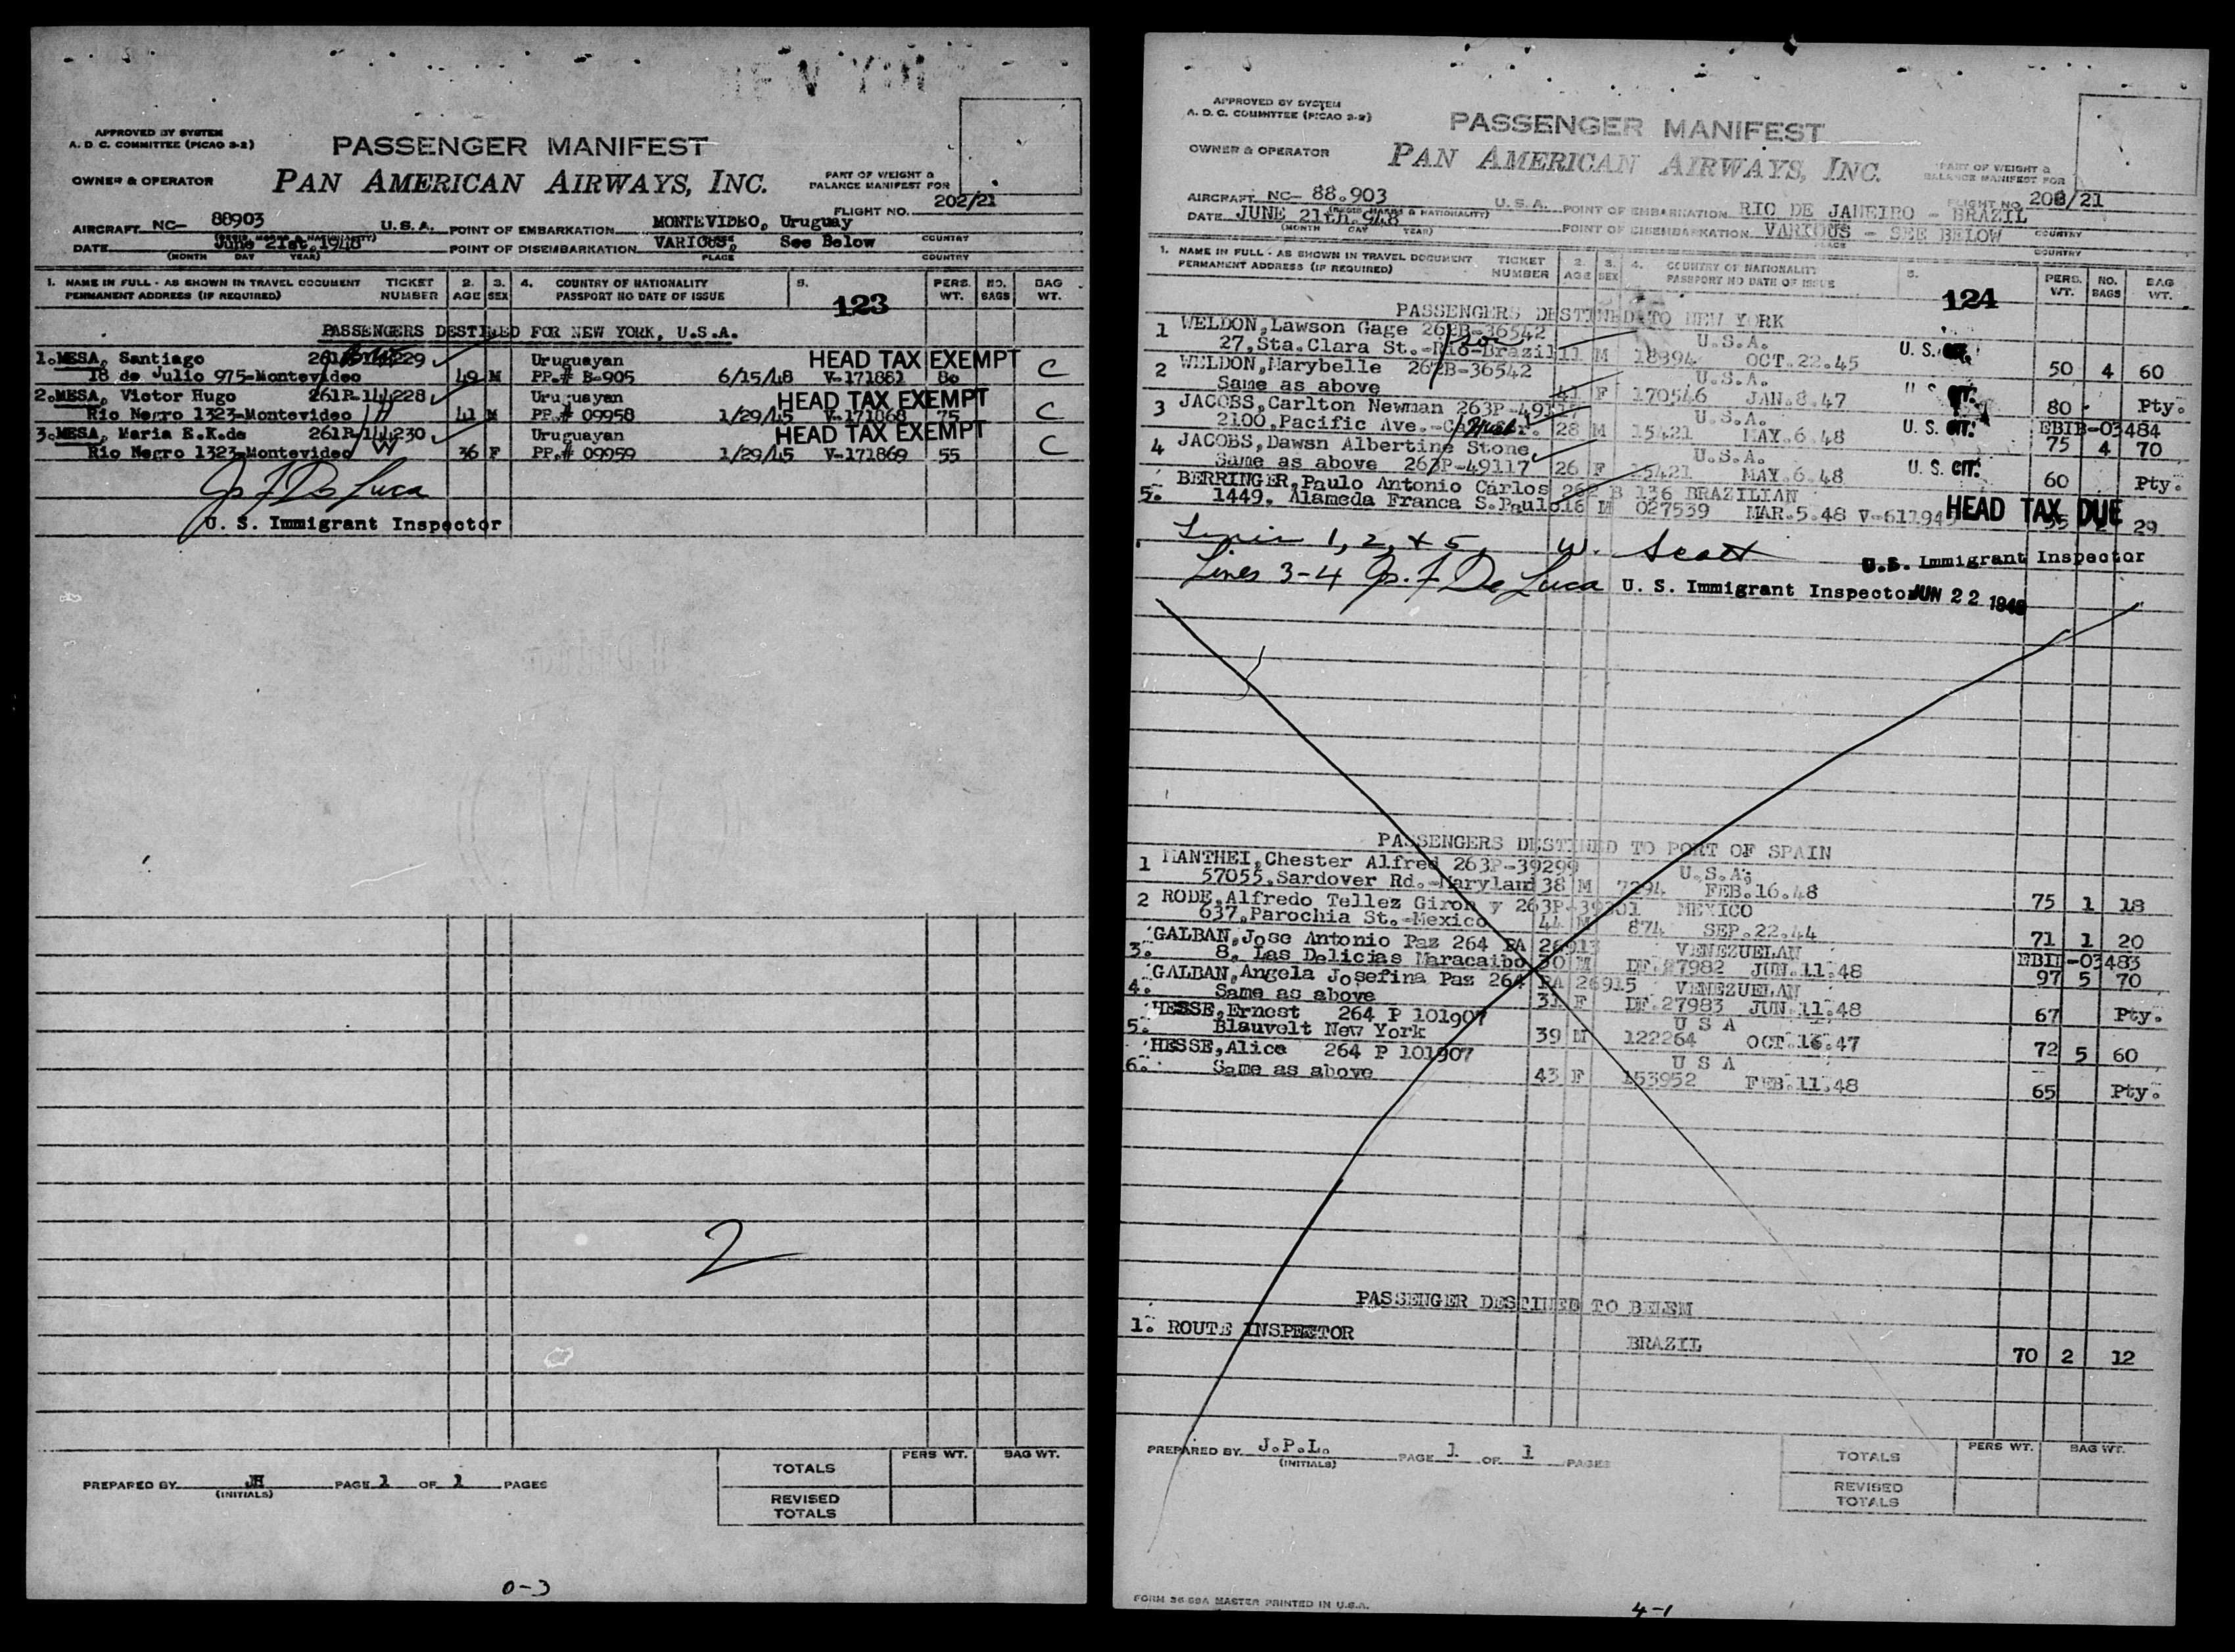 APPROVED BY SYSTEM
A. D. C. COMMITTEE (PICAO 3-2)
PASSENGER MANIFEST
OWNER & OPERATOR
PAN AMERICAN AIRWAYS, INC.
PART OF WEIGHT &
BALANCE MANIFEST FOR
FLIGHT NO. 202/21
AIRCRAFT NC- 88903 U.S.A. POINT OF EMBARKATION MONTEVIDEO, Uruguay
DATE June 21st.1948 POINT OF DISEMBARKATION VARIOUS, See Below COUNTRY
(MONTH DAY YEAR) PLACE COUNTRY
1. NAME IN FULL - AS SHOWN IN TRAVEL DOCUMENT TICKET 2. 3. 4. COUNTRY OF NATIONALITY 5. PERS. NO. BAG
PERMANENT ADDRESS (IF REQUIRED) NUMBER AGE SEX PASSPORT NO DATE OF ISSUE 123 WT. BAGS WT.
PASSENGERS DESTINED FOR NEW YORK, U.S.A.
1. MESA, Santiago Uruguayan HEAD TAX EXEMPT
18 de Julio 975-Montevideo 49 M PP.# B-905 6/15/48 V-171881 80 C
2. MESA, Victor Hugo 261P-144228 Uruguayan HEAD TAX EXEMPT
Rio Negro 1323-Montevideo H 41 M PP.# 09958 1/29/45 V-171868 75 C
3. MESA, Maria E.K.de 261P-144230 Uruguayan HEAD TAX EXEMPT
Rio Negro 1323-Montevideo W 36 F PP.# 09959 1/29/45 V-171869 55 C
Jos F De Luca
U. S. Immigrant Inspector
2
PERS WT. BAG WT.
TOTALS
PREPARED BY JH PAGE 1 OF 1 PAGES
(INITIALS)
REVISED
TOTALS
0-3
APPROVED BY SYSTEM
A. D. C. COMMITTEE (PICAO 3-2)
PASSENGER MANIFEST
OWNER & OPERATOR
PAN AMERICAN AIRWAYS, INC.
PART OF WEIGHT &
BALANCE MANIFEST FOR
FLIGHT NO. 202/21
AIRCRAFT NC- 88.903 U.S.A. POINT OF EMBARKATION RIO DE JANEIRO - BRAZIL
DATE JUNE 21th.948 POINT OF DISEMBARKATION VARIOUS - SEE BELOW COUNTRY
(MONTH DAY YEAR) PLACE COUNTRY
1. NAME IN FULL - AS SHOWN IN TRAVEL DOCUMENT TICKET 2. 3. 4. COUNTRY OF NATIONALITY 5. PERS. NO. BAG
PERMANENT ADDRESS (IF REQUIRED) NUMBER AGE SEX PASSPORT NO DATE OF ISSUE 124 WT. BAGS WT.
PASSENGERS DESTINED TO NEW YORK
1 WELDON, Lawson Gage 262B-36542 U.S.A.
27, Sta. Clara St.-Rio-Brazil 11 M 18394 OCT.22.45 U. S. 50 4 60
2 WELDON, Marybelle 262B-36542 U.S.A.
Same as above 41 F 170546 JAN.8.47 80 Pty.
3 JACOBS, Carlton Newman 263P-49117 U.S.A. U. S. CIT. EBIB-03484
2100, Pacific Ave.- 28 M 15421 MAY.6.48 75 4 70
4 JACOBS, Dawsn Albertine Stone U.S.A. U. S. CIT.
Same as above 263P-49117 26 F 15421 MAY.6.48 60 Pty.
BERRINGER, Paulo Antonio Carlos 262 B 136 BRAZILIAN
5. 1449. Alameda Franca S.Paulo 16 M 027539 MAR.5.48 V-611945 HEAD TAX DUE 55 2 29
Lines 1, 2, & 5 W. Scott U.S. Immigrant Inspector
Lines 3-4 Jos. F De Luca U. S. Immigrant Inspector JUN 22 1948
PASSENGERS DESTINED TO PORT OF SPAIN
1 MANTHEI, Chester Alfred 263P-39299 U.S.A.
57055, Sardover Rd.-Maryland 38 M 7294 FEB.16.48 75 1 18
2 RODE, Alfredo Tellez Giron y 263P-39301 MEXICO
637, Parochia St.-Mexico 44 M 874 SEP.22.44 71 1 20
GALBAN, Jose Antonio Paz 264 PA 26913 VENEZUELAN EBIB-03483
3. 8. Las Delicias Maracaibo 30 M DF.27982 JUN.11.48 97 5 70
GALBAN, Angela Josefina Paz 264 PA 26915 VENEZUELAN
4. Same as above 31 F DF.27983 JUN.11.48 67 Pty.
HESSE, Ernest 264 P 101907 U S A
5. Blauvelt New York 39 M 122264 OCT.16.47 72 5 60
HESSE, Alice 264 P 101907 U S A
6. Same as above 43 F 153952 FEB.11.48 65 Pty.
PASSENGER DESTINED TO BELEM
1. ROUTE INSPECTOR BRAZIL 70 2 12
PREPARED BY J.P.L. PAGE 1 OF 1 PAGES
(INITIALS)
PERS WT. BAG WT.
TOTALS
REVISED
TOTALS
FORM 36-68A MASTER PRINTED IN U.S.A.
4-1